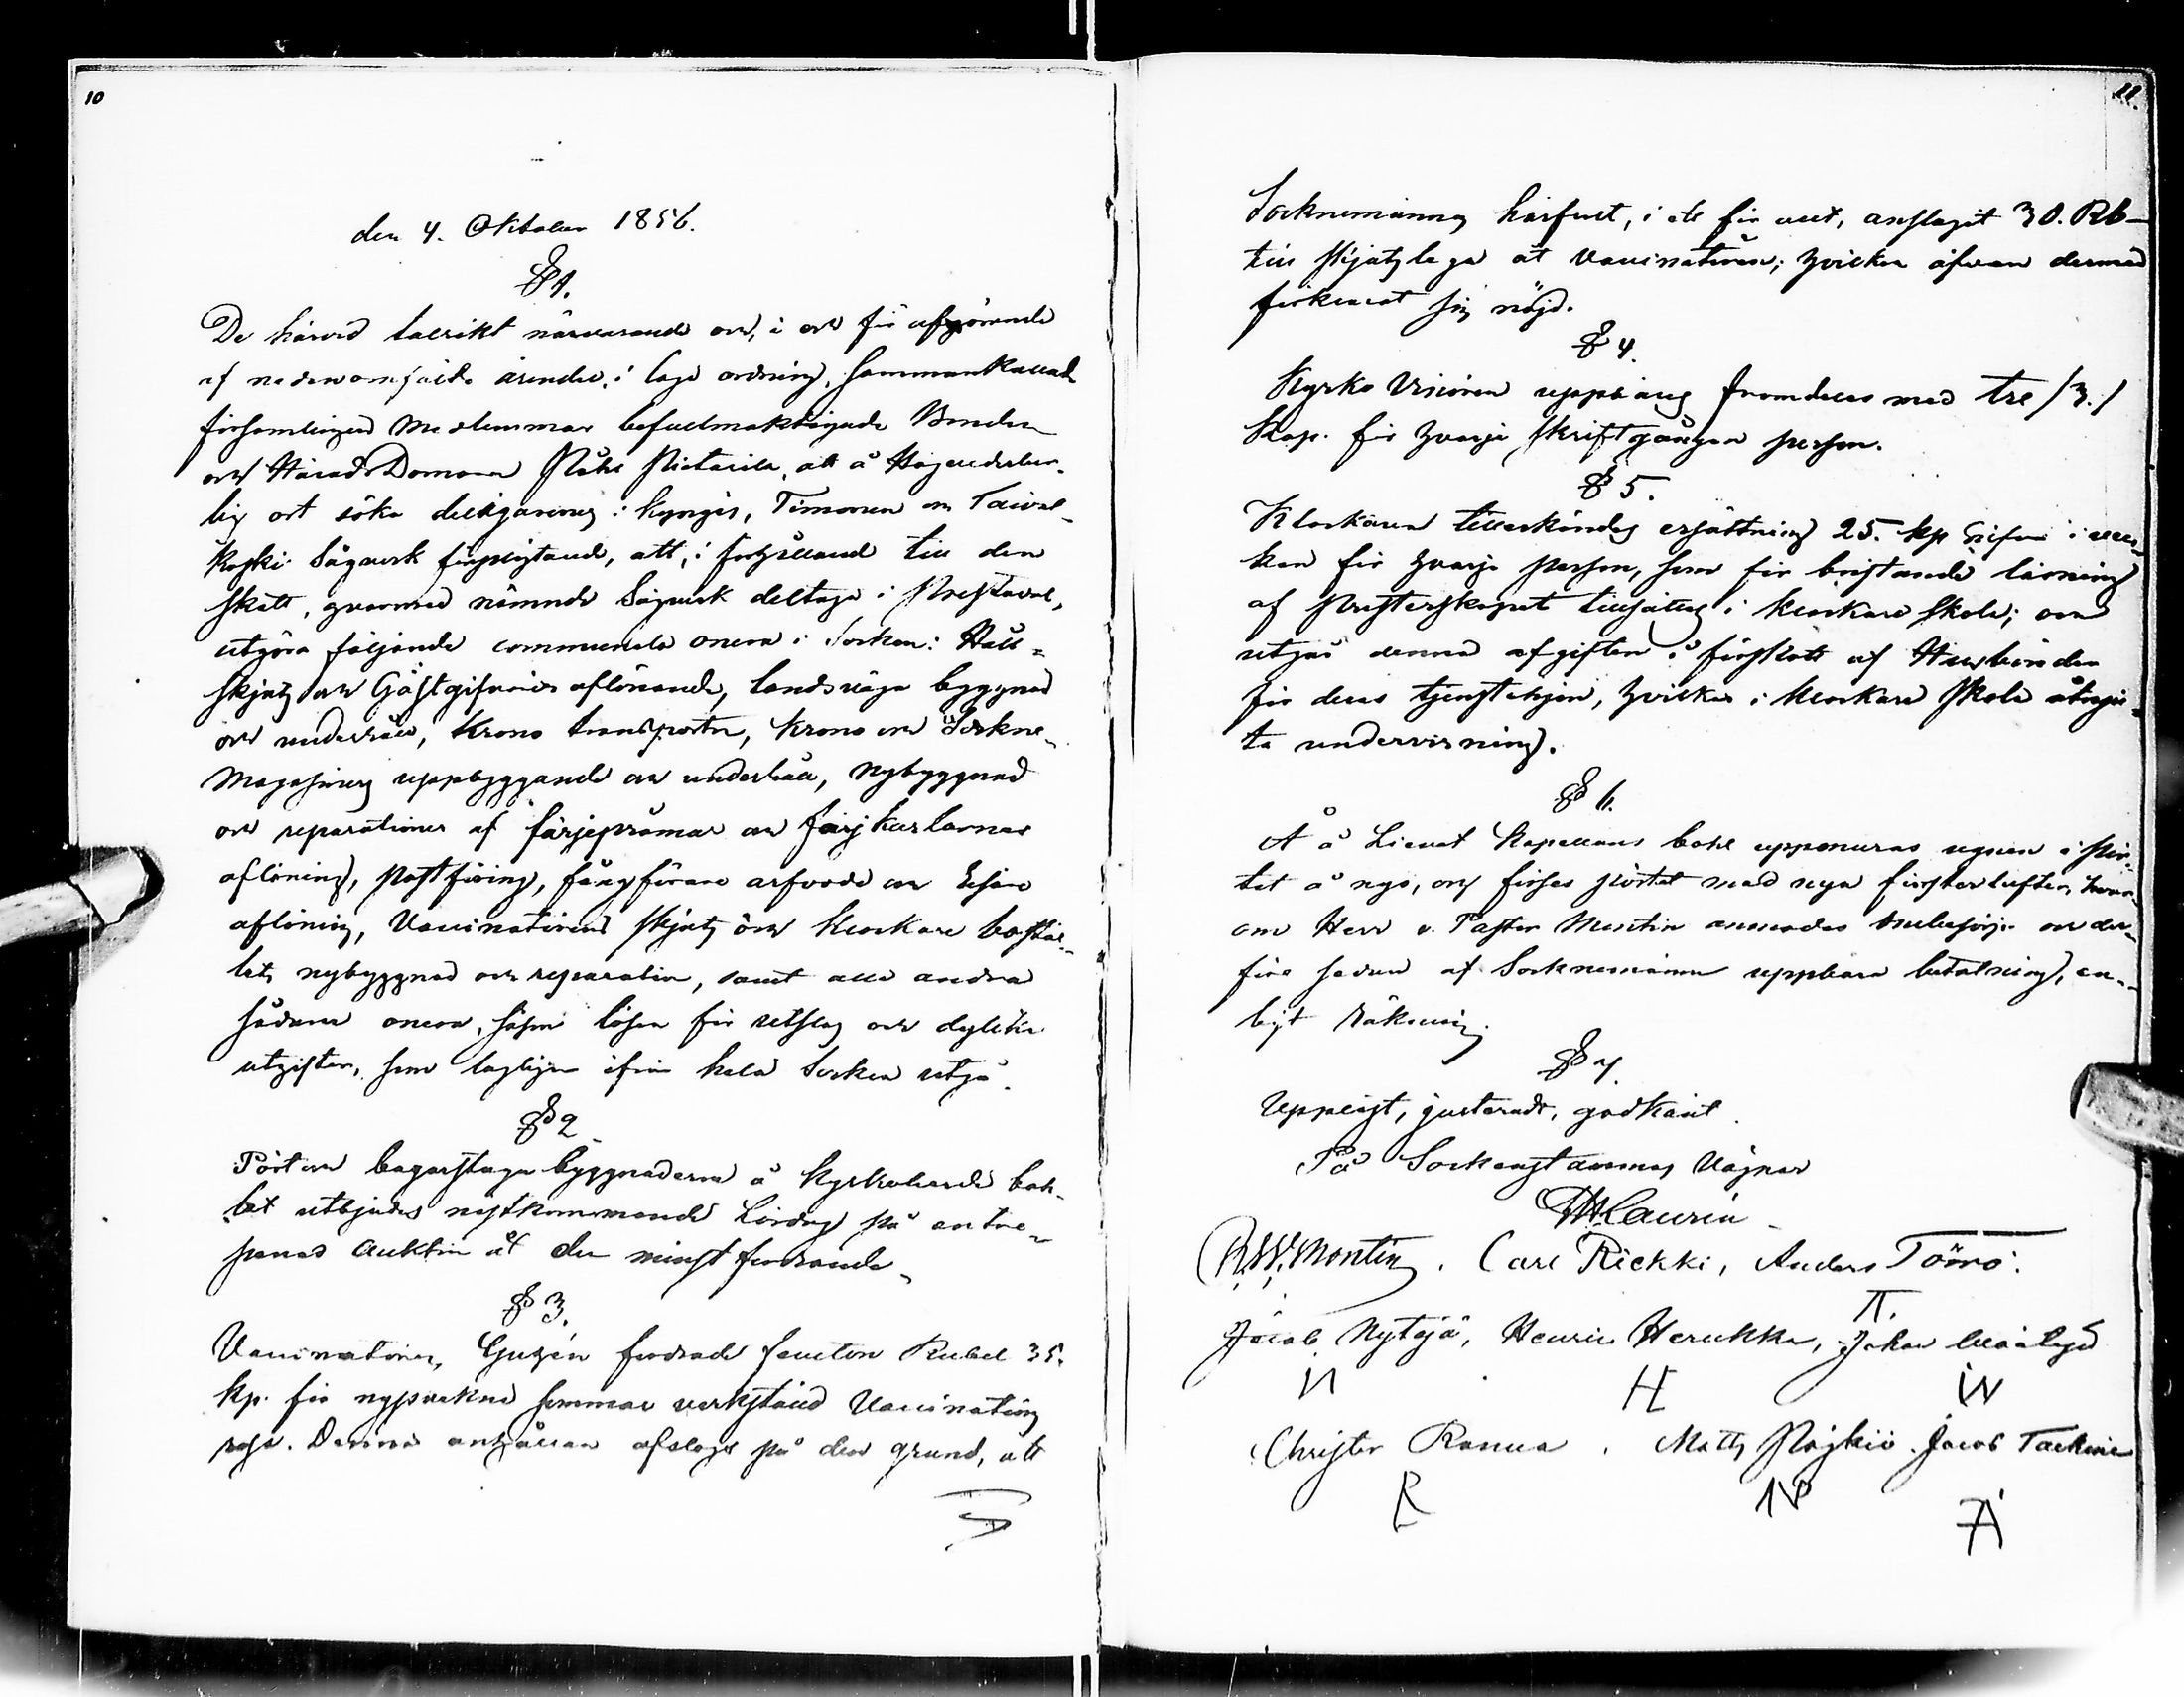 10
den 4. Oktober 1856.
§ 1.
De härvid talrikt närvarande och, i och för afgörande
af nedanomförälde ärender, i laga ordning, sammankallade
församlingens Medlemmar befullmäktigade Bonden
och HäradsDomaren Påhl Pietarila, att å Högvederbör-
lig ort söka delegarenes i Kyngäs, Timonen och Taival-
koski Sågverk förpligtande, att, i förhållande till den
skatt, hvarmed nämnde Sågverk deltaga i Prestaval,
utgöra följande communela onera i Socken: Håll-
skjuts och Gästgifveriers aflönande, landsväga byggnad
och underhåll, Krono transporter, Krono och Sockne-
Magasiners uppbyggande och underhåll, nybyggnad
och reparationer af färjeprämar och färjkarlarnas
aflöning, postföring, fångförare arfvode och
aflöning, Vaccinatörens skjuts och Klockare bostäl-
lets nybyggnad och reparation, samt alla andra
sådane onera, såsom lösen för utslag och dylika
utgifter, som lagligen ifrån hela Socken utgå.
§ 2
Pört och bagarstuga byggnaderna å Kyrkoherde bo-
let utbjudes nästkommande Lördag på entre-
penad Auktion åt den minst fordrande.
§ 3.
Vaccinatören, fordrade femton Rubel 35.
kp. för nyss verkne sommar verkstäld Vaccinations
resa. Denna anhållan afslogs på den grund, att
11.
Socknemännerne härförut, i ett för allt, anslagit 30. Rb-
till skjutslega åt Vaccinatören; hvilken äfven dermed
förklarat sig nöjd.
§ 4.
Kyrko Visiören uppbäres framdeles med tre /3./
Kop. för hvarje skriftgången person.
§ 5.
Klockaren tillerkändes ersättning 25. kp Silfver i veckan
kan för hvarje person, som för bristande läsning
af Presterskapet tillsättes i klockare skola; och
utgår denna afgiften i förskott af Husbönden
för deras tjenstehjon, hvilka i klockare skola åtnju-
ta undervisning.
§ 6.
Å Kapellans bohl uppmuras ugnen i pör-
tet å nyo, och förses pörtet med nya fönsterlufter, hvar-
om Herr v. Pastor Montin anmodes ombesörja och der-
före sedan af Socknemännen uppbära betalning, en-
ligt räkning.
§ 7.
Uppläst, justerade, godkänt.
På Sockenstämmans Vägnar
Laurin
Montin, Carl Riekki, Anders Törrö.
T.
Jacob Nytäjä, Henric Herukka, Johan
N H W
Christer Ranua, Matts Jacob
R NP